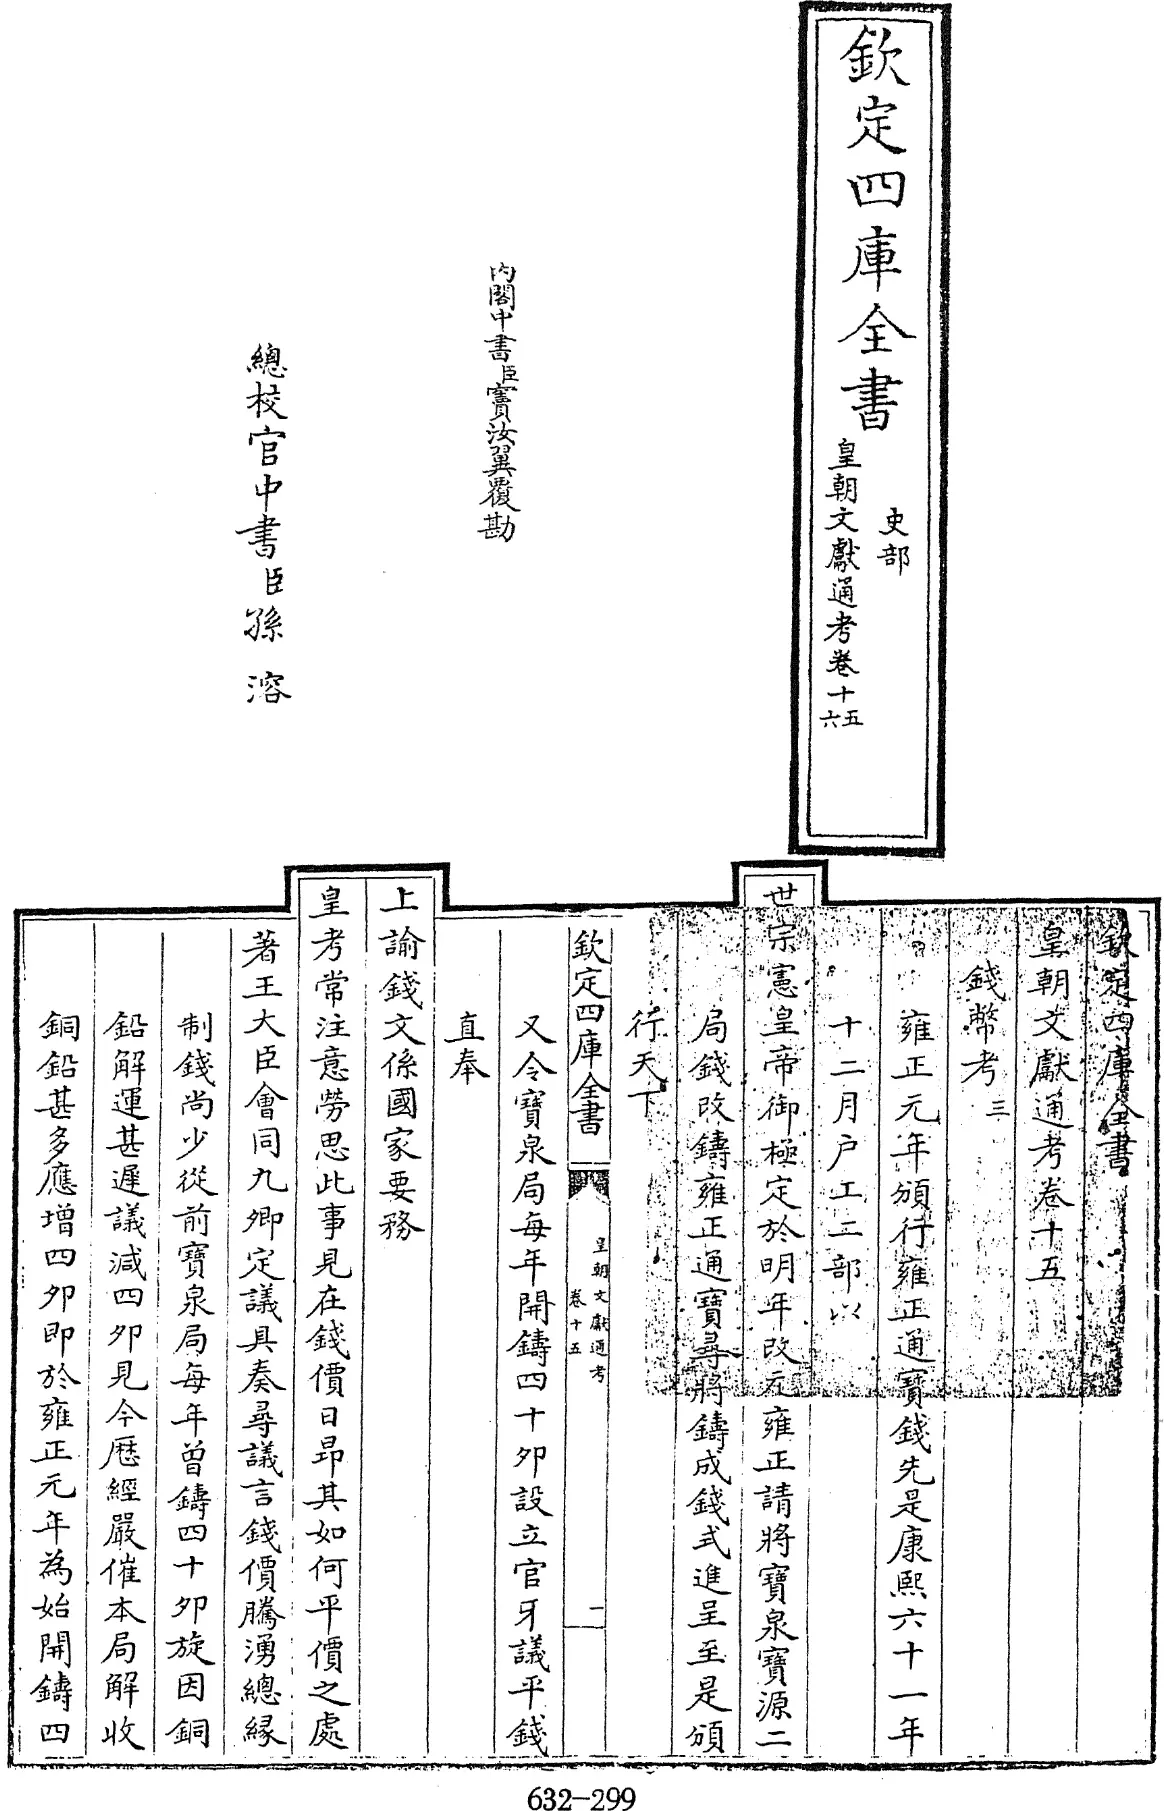 欽定四庫全書
史部
皇朝文獻通考卷十五
六
內閣中書臣竇汝翼覆勘
總校官中書臣孫溶
欽定四庫全書
皇朝文獻通考卷十五
錢幣考三
雍正元年頒行雍正通寶錢先是康熙六十一年
十二月戶工二部以
世宗憲皇帝御極定於明年改元雍正請將寶泉寶源二
局錢改鑄雍正通寶尋將鑄成錢式進呈至是頒
行天下
欽定四庫全書
皇朝文獻通考
卷十五
二
又令寶泉局每年開鑄四十夘設立官牙議平錢
直奉
上諭錢文係國家要務
皇考常注意勞思此事見在錢價日昂其如何平價之處
著王大臣會同九卿定議具奏尋議言錢價騰湧總緣
制錢尚少從前寶泉局每年曾鑄四十夘旋因銅
鉛解運甚遲議減四夘見今歷經嚴催本局解收
銅鉛甚多應增四夘即於雍正元年為始開鑄四
632-299